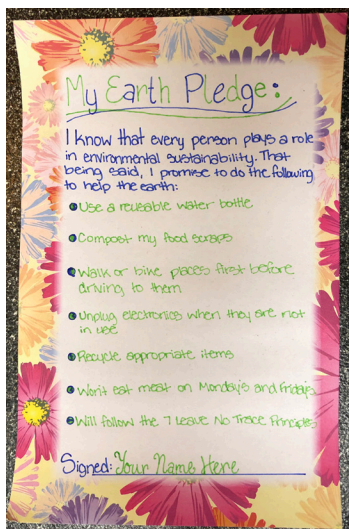 My Earth Pledge:
I know that every person plays a role
in environmental sustainability. That
being said, I promise to do the following
to help the earth:
Use a reusable water bottle
Compost my food scraps
Walk or bike places first before
driving to them
Unplug electronics when they are not
in use
Recycle appropriate items
Won't eat meat on Monday's and Fridays
Will follow the 7 Leave No Trace Principles
Signed: Your Name Here